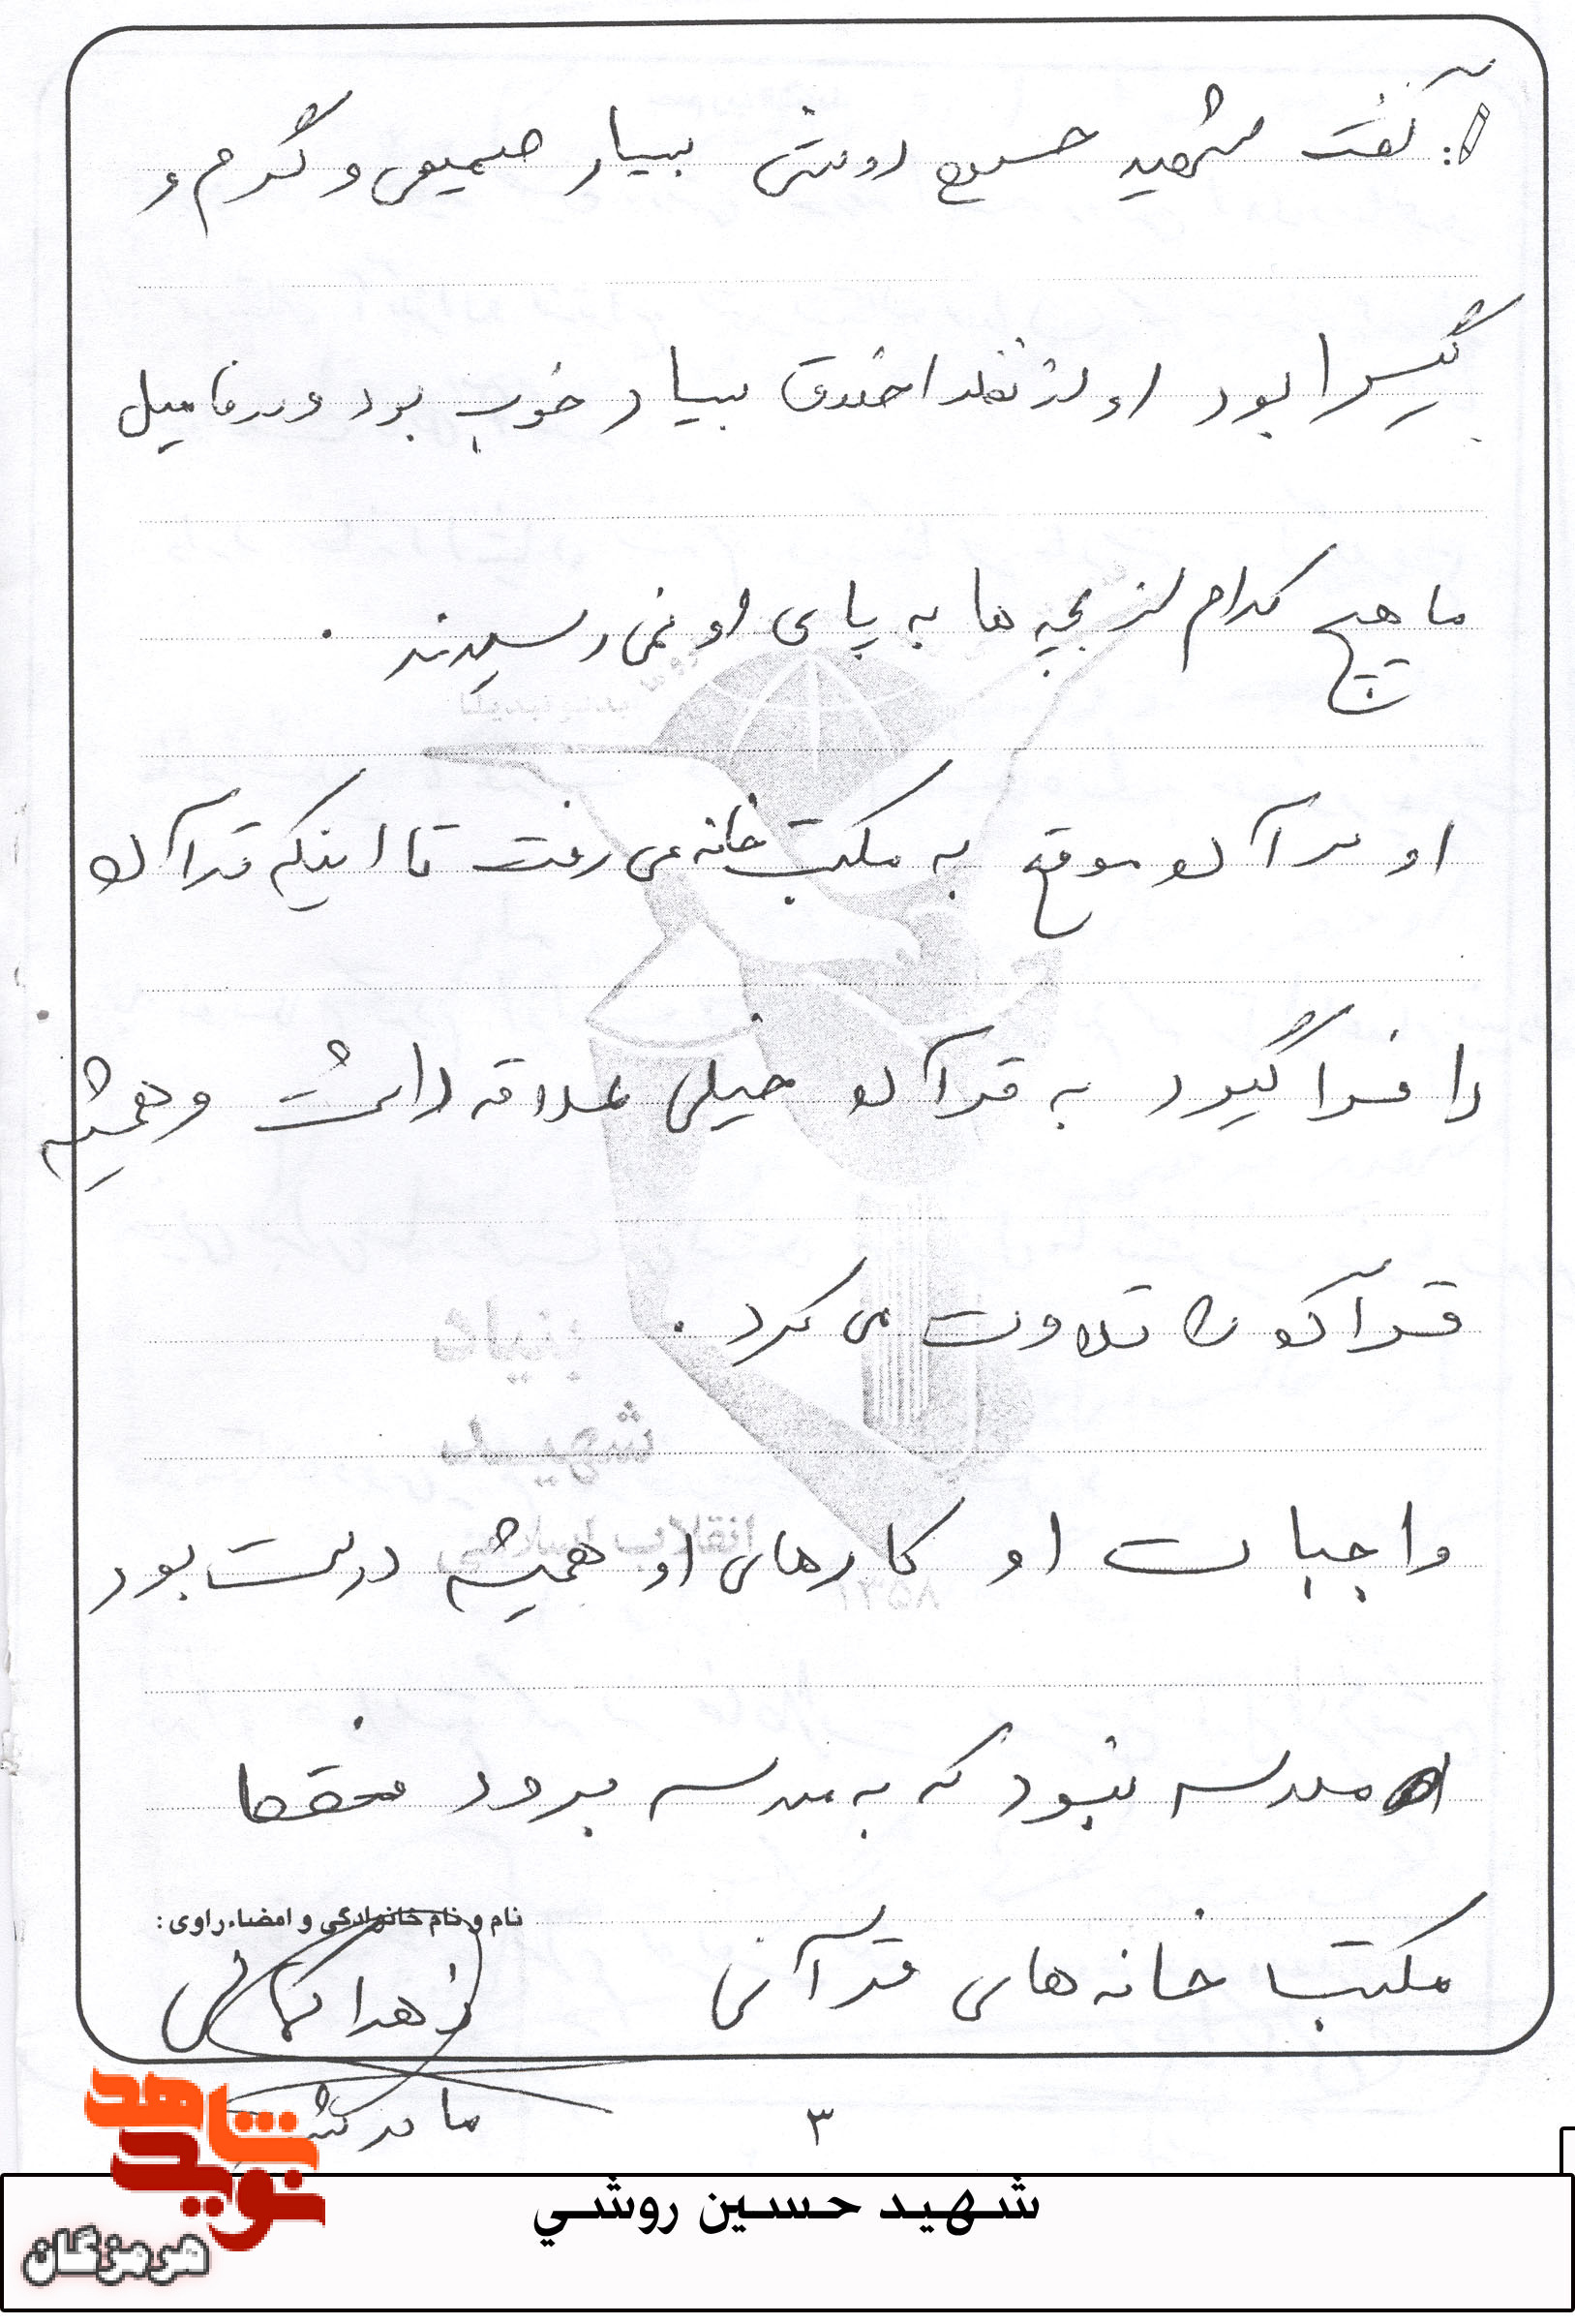 : گفت شهید حسین روشی بسیار صمیمی و گرم و
گیرا بود او از نظر اخلاق بسیار خوب بود و در فامیل
ما هیچ کدام از بچه ها به پای او نمی رسیدند .
او در آن موقع به مکتب خانه می رفت تا اینکه قرآن
را فرا گیرد به قرآن خیلی علاقه داشت و همیشه
قرآن را تلاوت می کرد .
واجبات او کارهای او همیشه درست بود
مدرسه نبود که به مدرسه برود فقط
مکتب خانه های قرآنی
نام و نام خانوادگی و امضاء راوی :
زهرا کمالی
مادر شهید
۳
بنیاد
شهید
انقلاب اسلامی
۱۳۵۸
شهید حسین روشي
شاهد
نوید
هرمزگان